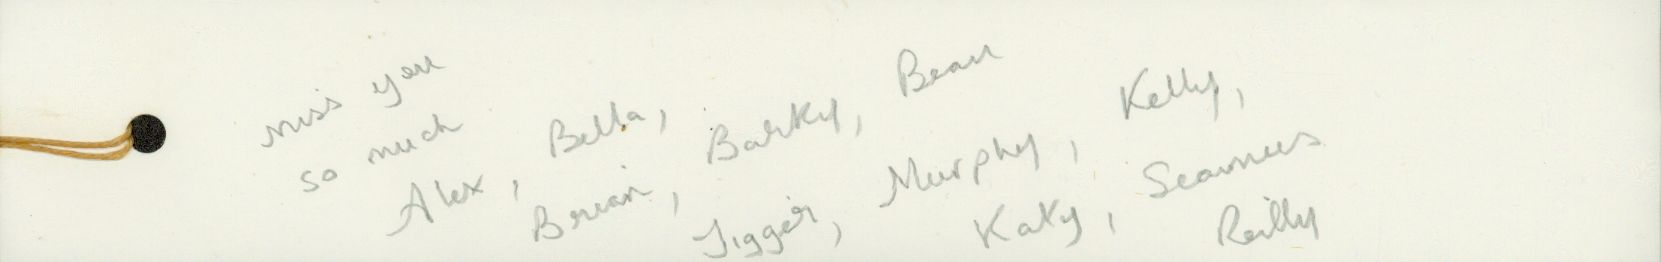 miss you
so much
Alex, Bella,
Brian, Barky, Bear
Jigger, Murphy, Kelly,
Katy, Seamus
Reilly